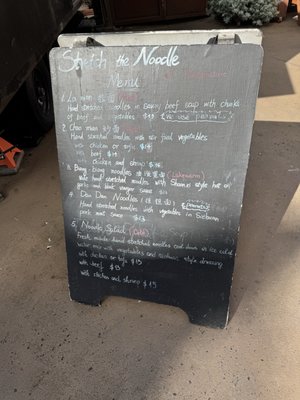 Stretch the Noodle
Menu
1. La mian
Hand stretched noodles in Savory beef soup with chunks
of beef and vegetables $19 We use peanut
2. Chao mian
Hand stretched noodles with stir fried vegetables
with chicken or tofu $14
with beef $14
with chicken and shrimp $16
3. Biang biang noodles
hand stretched noodles with Shaanxi style hot oil
garlic and black vinegar sauce
4. Dan Dan Noodles
Hand stretched noodles with vegetables in Sichuan
pork meat sauce
5. Noodle Salad (Cold)
Fresh made hand stretched noodles cool down in ice cold
water mix with vegetables and sichuan style dressing
with chicken or tofu $15
with beef $15
with chicken and shrimp $15